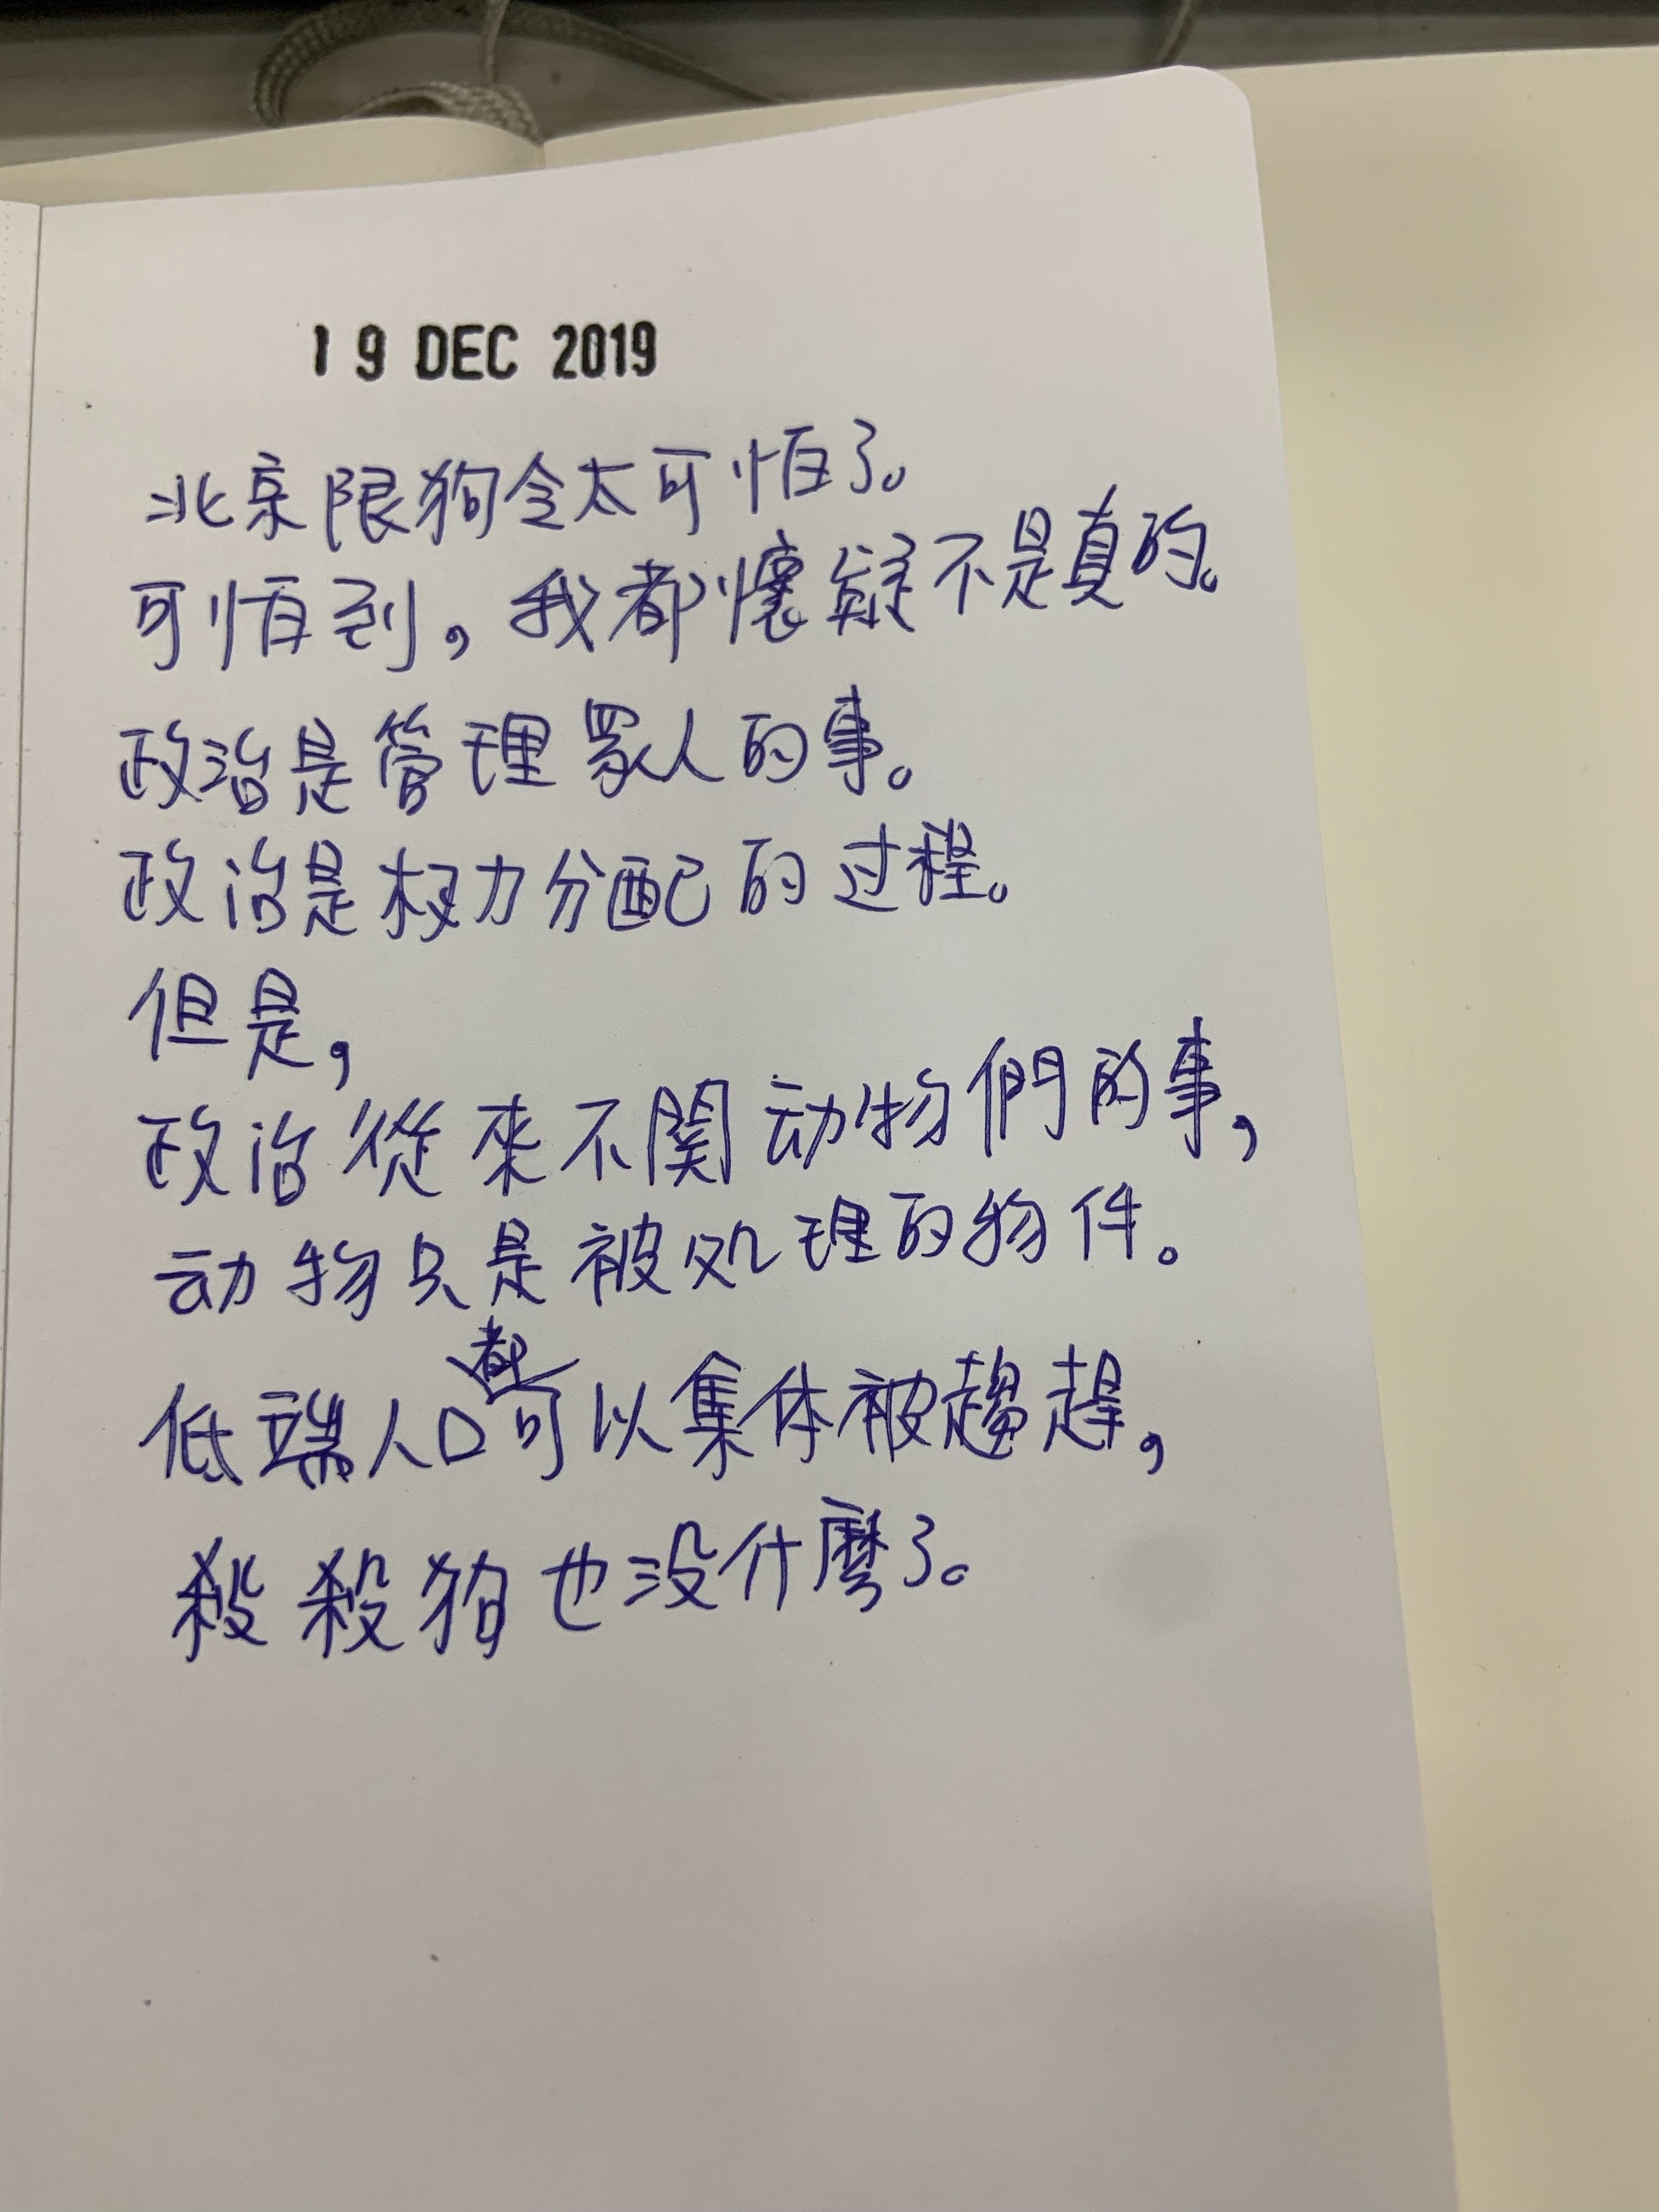 19 DEC 2019
北京限狗令太可怕了。
可怕到，我都懷疑不是真的。
政治是管理眾人的事。
政治是权力分配的过程。
但是，
政治從來不関动物們的事，
动物只是被处理的物件。
低端人口都可以集体被趨趕，
殺殺狗也没什麼了。